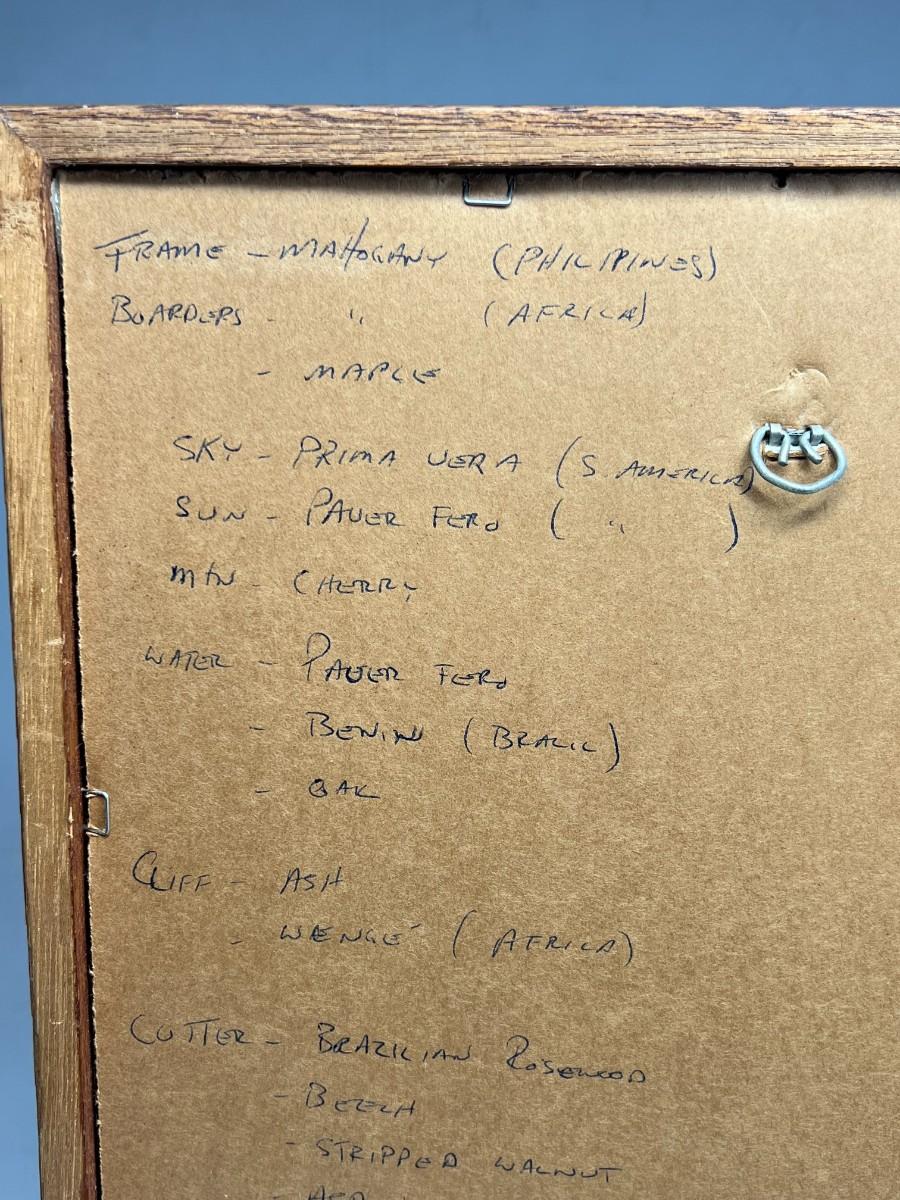 FRAME - MAHOGANY (PHILIPPINES)
BOARDERS - " (AFRICA)
- MAPLE
SKY - PRIMA VERA (S. AMERICA)
SUN - PAUER FERO ( " )
MTN - CHERRY
WATER - PAUER FERO
- BENIN (BRAZIL)
- OAK
CLIFF - ASH
- WAENGÉ (AFRICA)
CUTTER - BRAZILIAN ROSEWOOD
- BEECH
- STRIPPED WALNUT